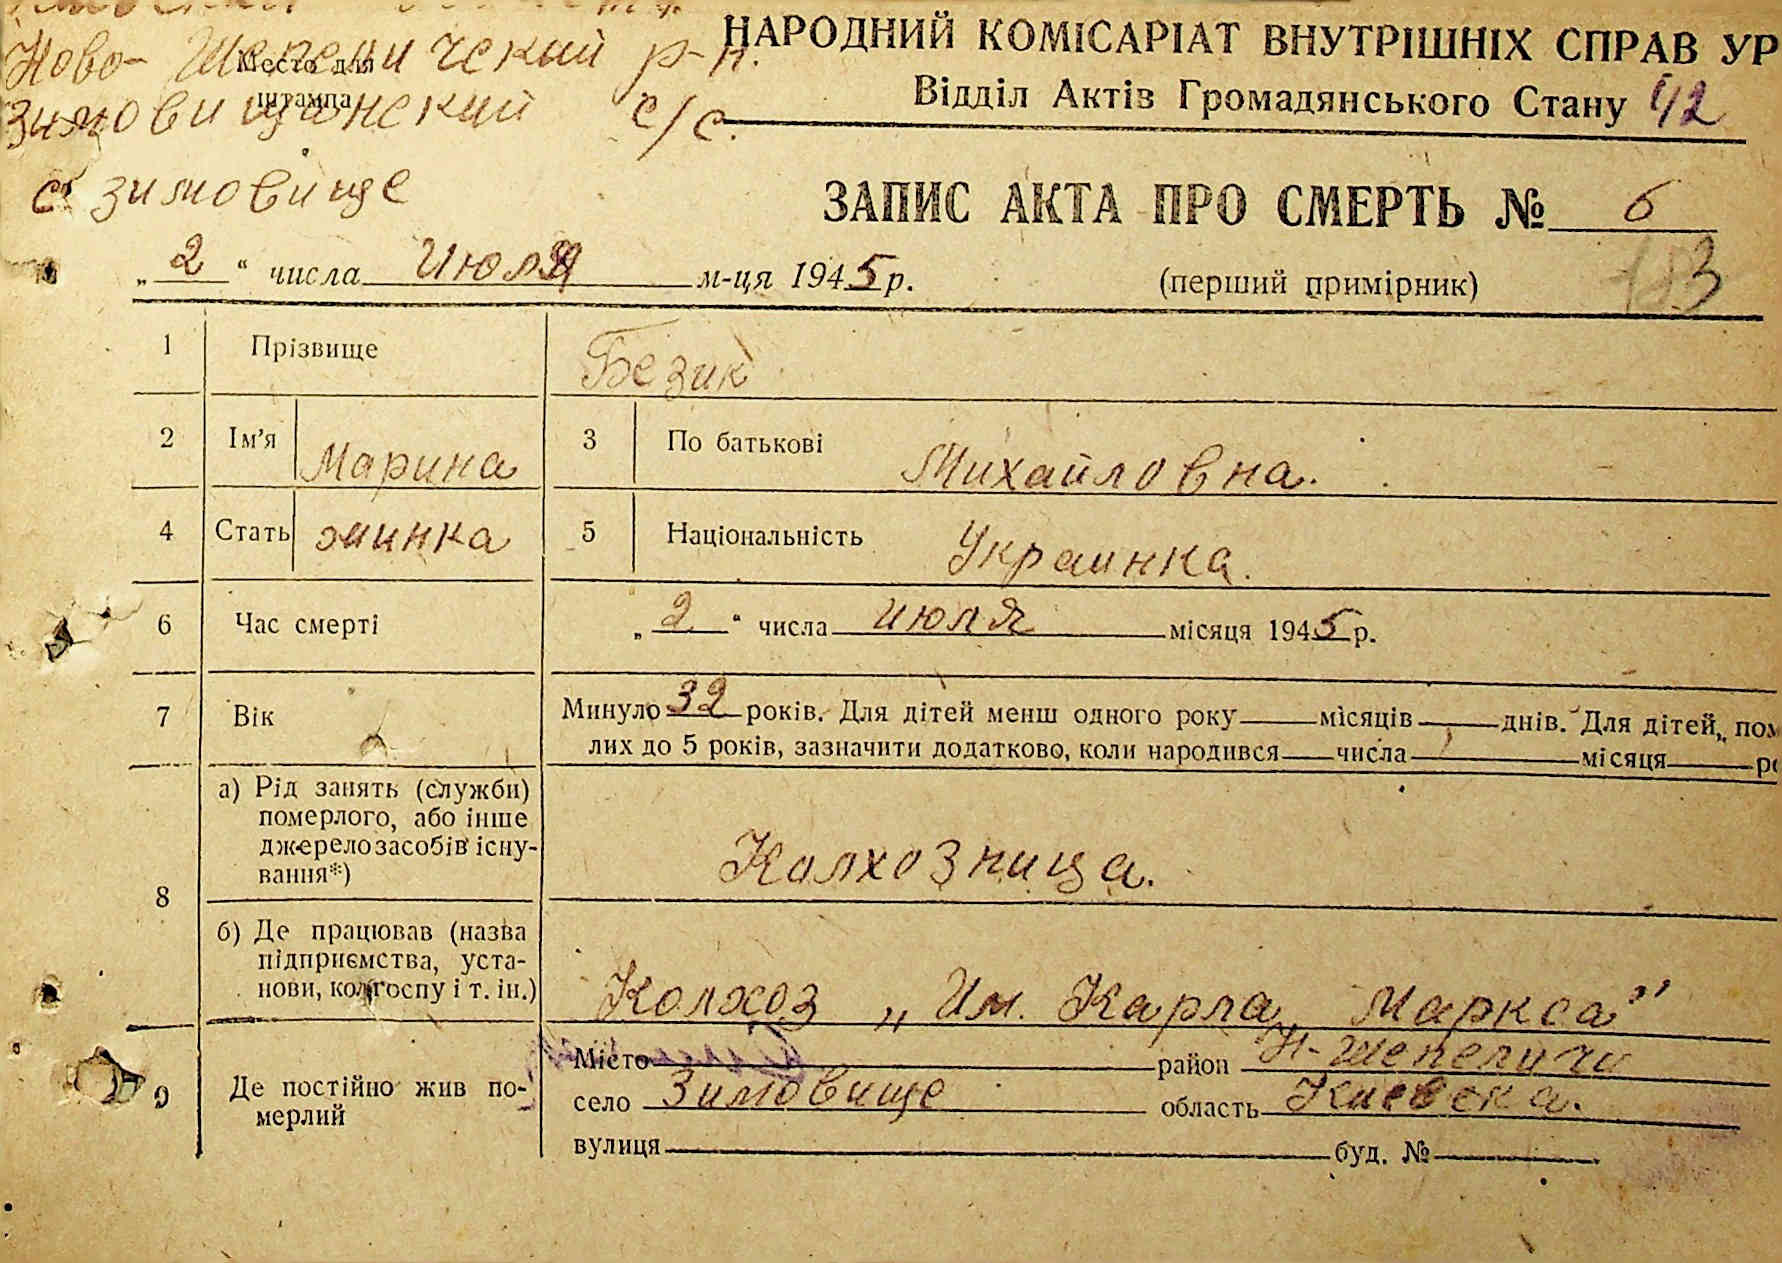 Ново-Шепеличский р-н.
Место для
штампа
Зимовищанский с/с.
с. Зимовище
НАРОДНИЙ КОМІСАРІАТ ВНУТРІШНІХ СПРАВ УР
Відділ Актів Громадянського Стану 42
ЗАПИС АКТА ПРО СМЕРТЬ № 6
„2“ числа Июля м-ця 1945 р. (перший примірник)
1 Прізвище Безик
2 Ім'я Марина 3 По батькові Михайловна.
4 Стать жинка 5 Національність Украинка.
6 Час смерті „2“ числа июля місяця 1945 р.
7 Вік Минуло 32 років. Для дітей менш одного року місяців днів. Для дітей, пом
лих до 5 років, зазначити додатково, коли народився числа місяця ро
8 а) Рід занять (служби)
померлого, або інше
джерело засобів існу-
вання*) Колхозница.
б) Де працював (назва
підприємства, уста-
нови, колгоспу і т. ін.) Колхоз „Им. Карла Маркса"
9 Де постійно жив по-
мерлий
Місто район Н-Шепеличи
село Зимовище область Киевска.
вулиця буд. №